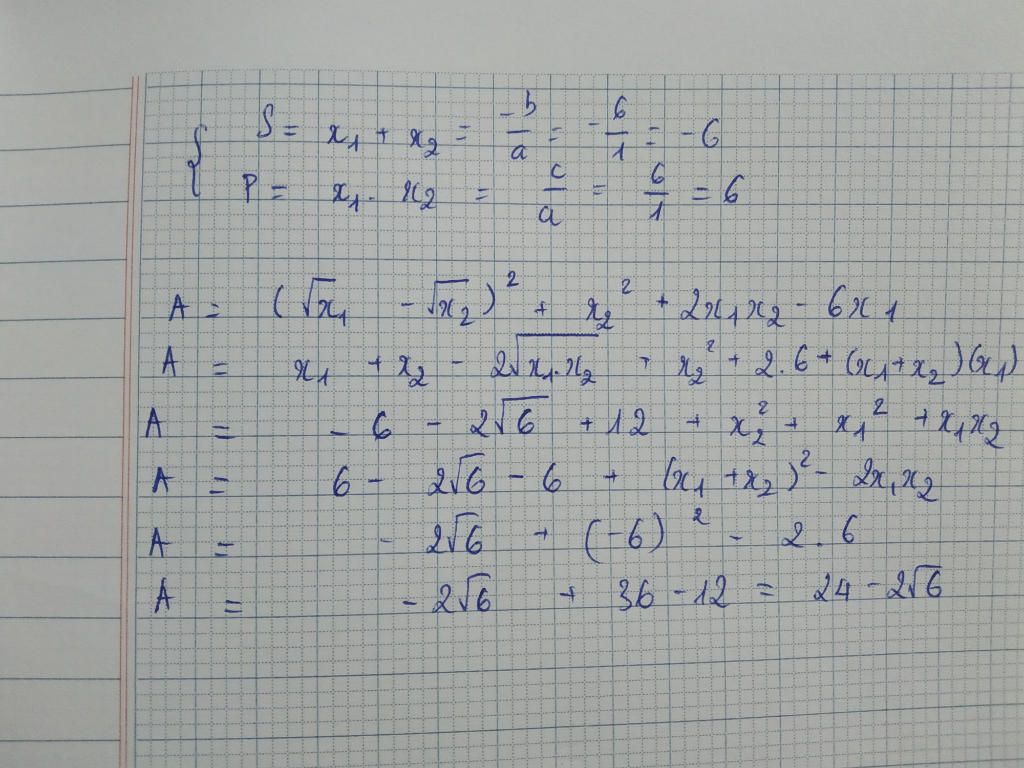 { S = x₁ + x₂ = -b/a = -6/1 = -6
P = x₁ . x₂ = c/a = 6/1 = 6
A = (√x₁ - √x₂)² + x₂² + 2x₁x₂ - 6x₁
A = x₁ + x₂ - 2√x₁.x₂ + x₂² + 2.6 + (x₁+x₂)(x₁)
A = - 6 - 2√6 + 12 + x₂² + x₁² + x₁x₂
A = 6 - 2√6 - 6 + (x₁ + x₂)² - 2x₁x₂
A = - 2√6 + (-6)² - 2.6
A = - 2√6 + 36 - 12 = 24 - 2√6